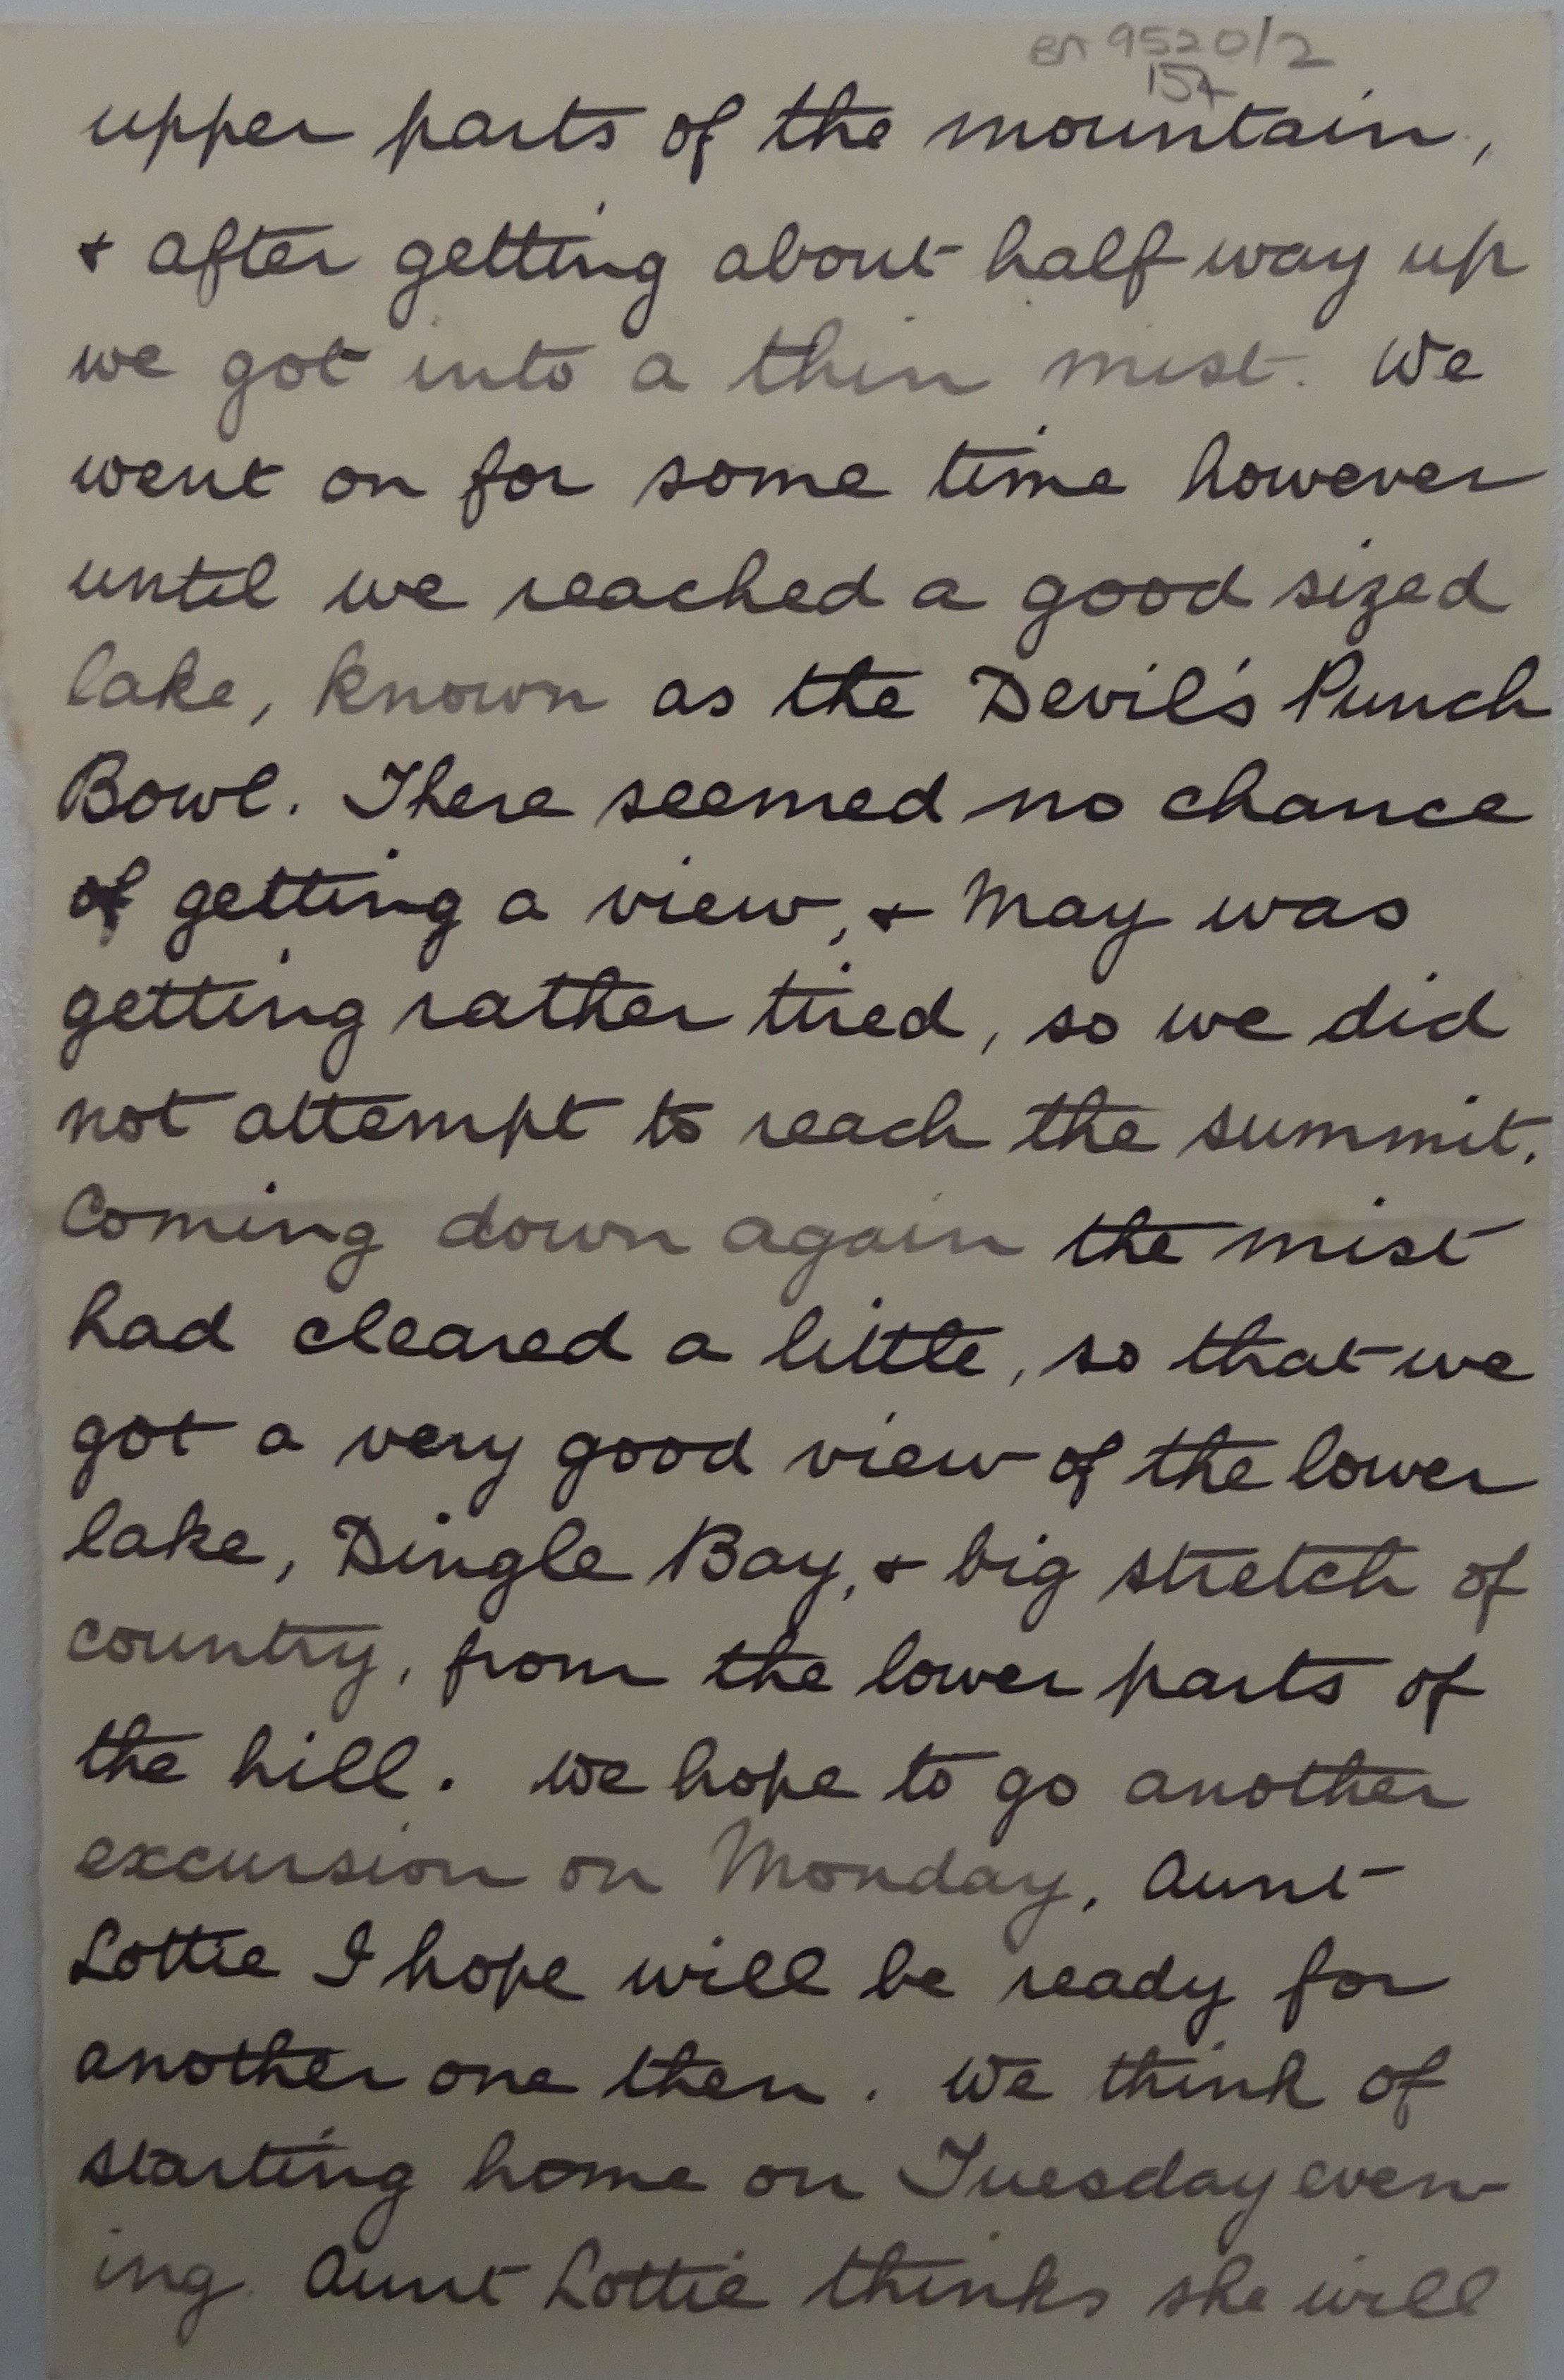 BA 9520/2
157
upper parts of the mountain,
& after getting about half way up
we got into a thin mist. We
went on for some time however
until we reached a good sized
lake, known as the Devil's Punch
Bowl. There seemed no chance
of getting a view, & May was
getting rather tired, so we did
not attempt to reach the summit.
Coming down again the mist
had cleared a little, so that we
got a very good view of the lower
lake, Dingle Bay, & big stretch of
country, from the lower parts of
the hill. We hope to go another
excursion on Monday, Aunt
Lottie I hope will be ready for
another one then. We think of
starting home on Tuesday even-
ing. Aunt Lottie thinks she will